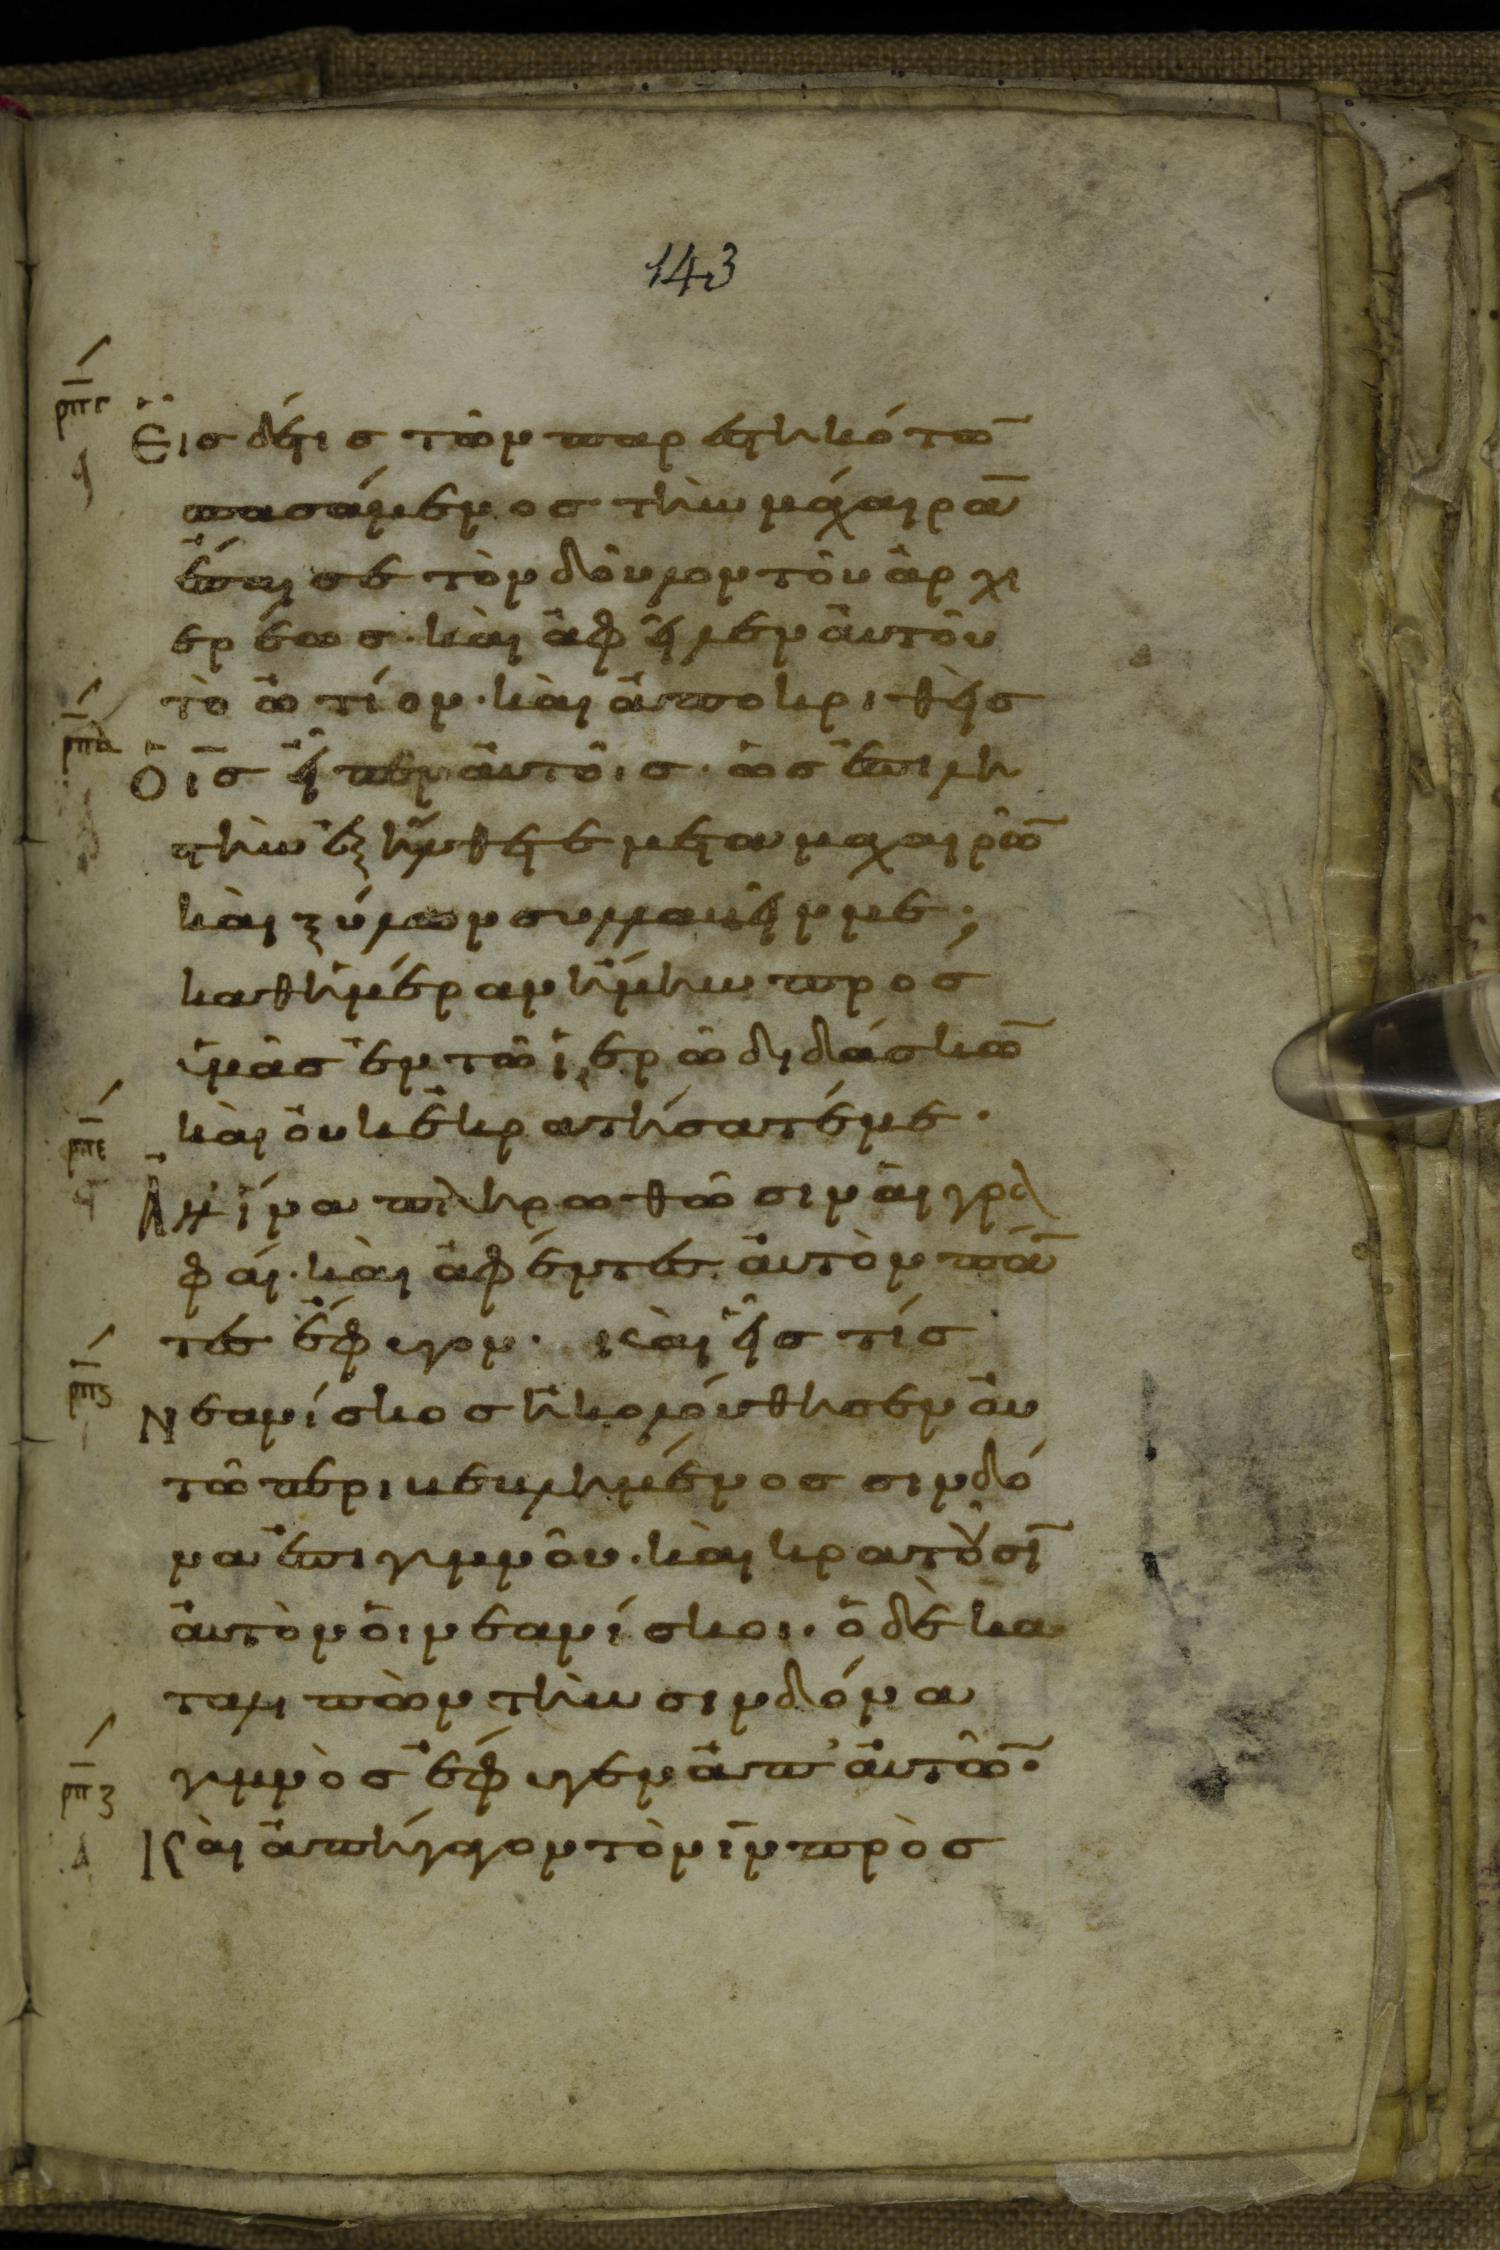 143
ρπγ
Εἷσ δέ τισ τῶν παρεστηκότω̅
σπασάμενοσ τὴν μάχαιρα̅
ἔπαισε τὸν δοῦλον τοῦ ἀρχι
ερέωσ· καὶ ἀφεῖλεν αὐτοῦ
τὸ ὠτίον· καὶ ἀποκριθεὶσ
ρπδ
Ὁ ι̅σ εἶπεν αὐτοῖσ· ὡσ ἐπὶ λη
στὴν ἐξήλθετε μετα μαχαιρῶ̅
καὶ ξύλων συλλαβεῖν με;
καθημέραν ἤμην προσ
ὑμᾶσ ἐν τῶ ἱερῶ διδάσκω̅
καὶ οὐκ ἐκρατήσατέ με·
ρπε
Ἀλλ' ἵνα πληρωθῶσιν αἱ γρα
φαί· καὶ ἀφέντεσ αὐτὸν πά̅
τεσ ἔφυγον· καὶ εἷσ τίσ
ρπϛ
Νεανίσκοσ ἠκολούθησεν αὐ
τῶ περιβεβλημένοσ σινδό
να ἐπι γυμνοῦ· καὶ κρατοῦσι̅
αὐτὸν οἱ νεανίσκοι· ὁ δὲ κα
ταλιπὼν τὴν σινδόνα
γυμνὸσ ἔφυγεν ἀπ' αὐτῶ̅·
ρπζ
Καὶ ἀπήγαγον τὸν ι̅ν πρὸσ